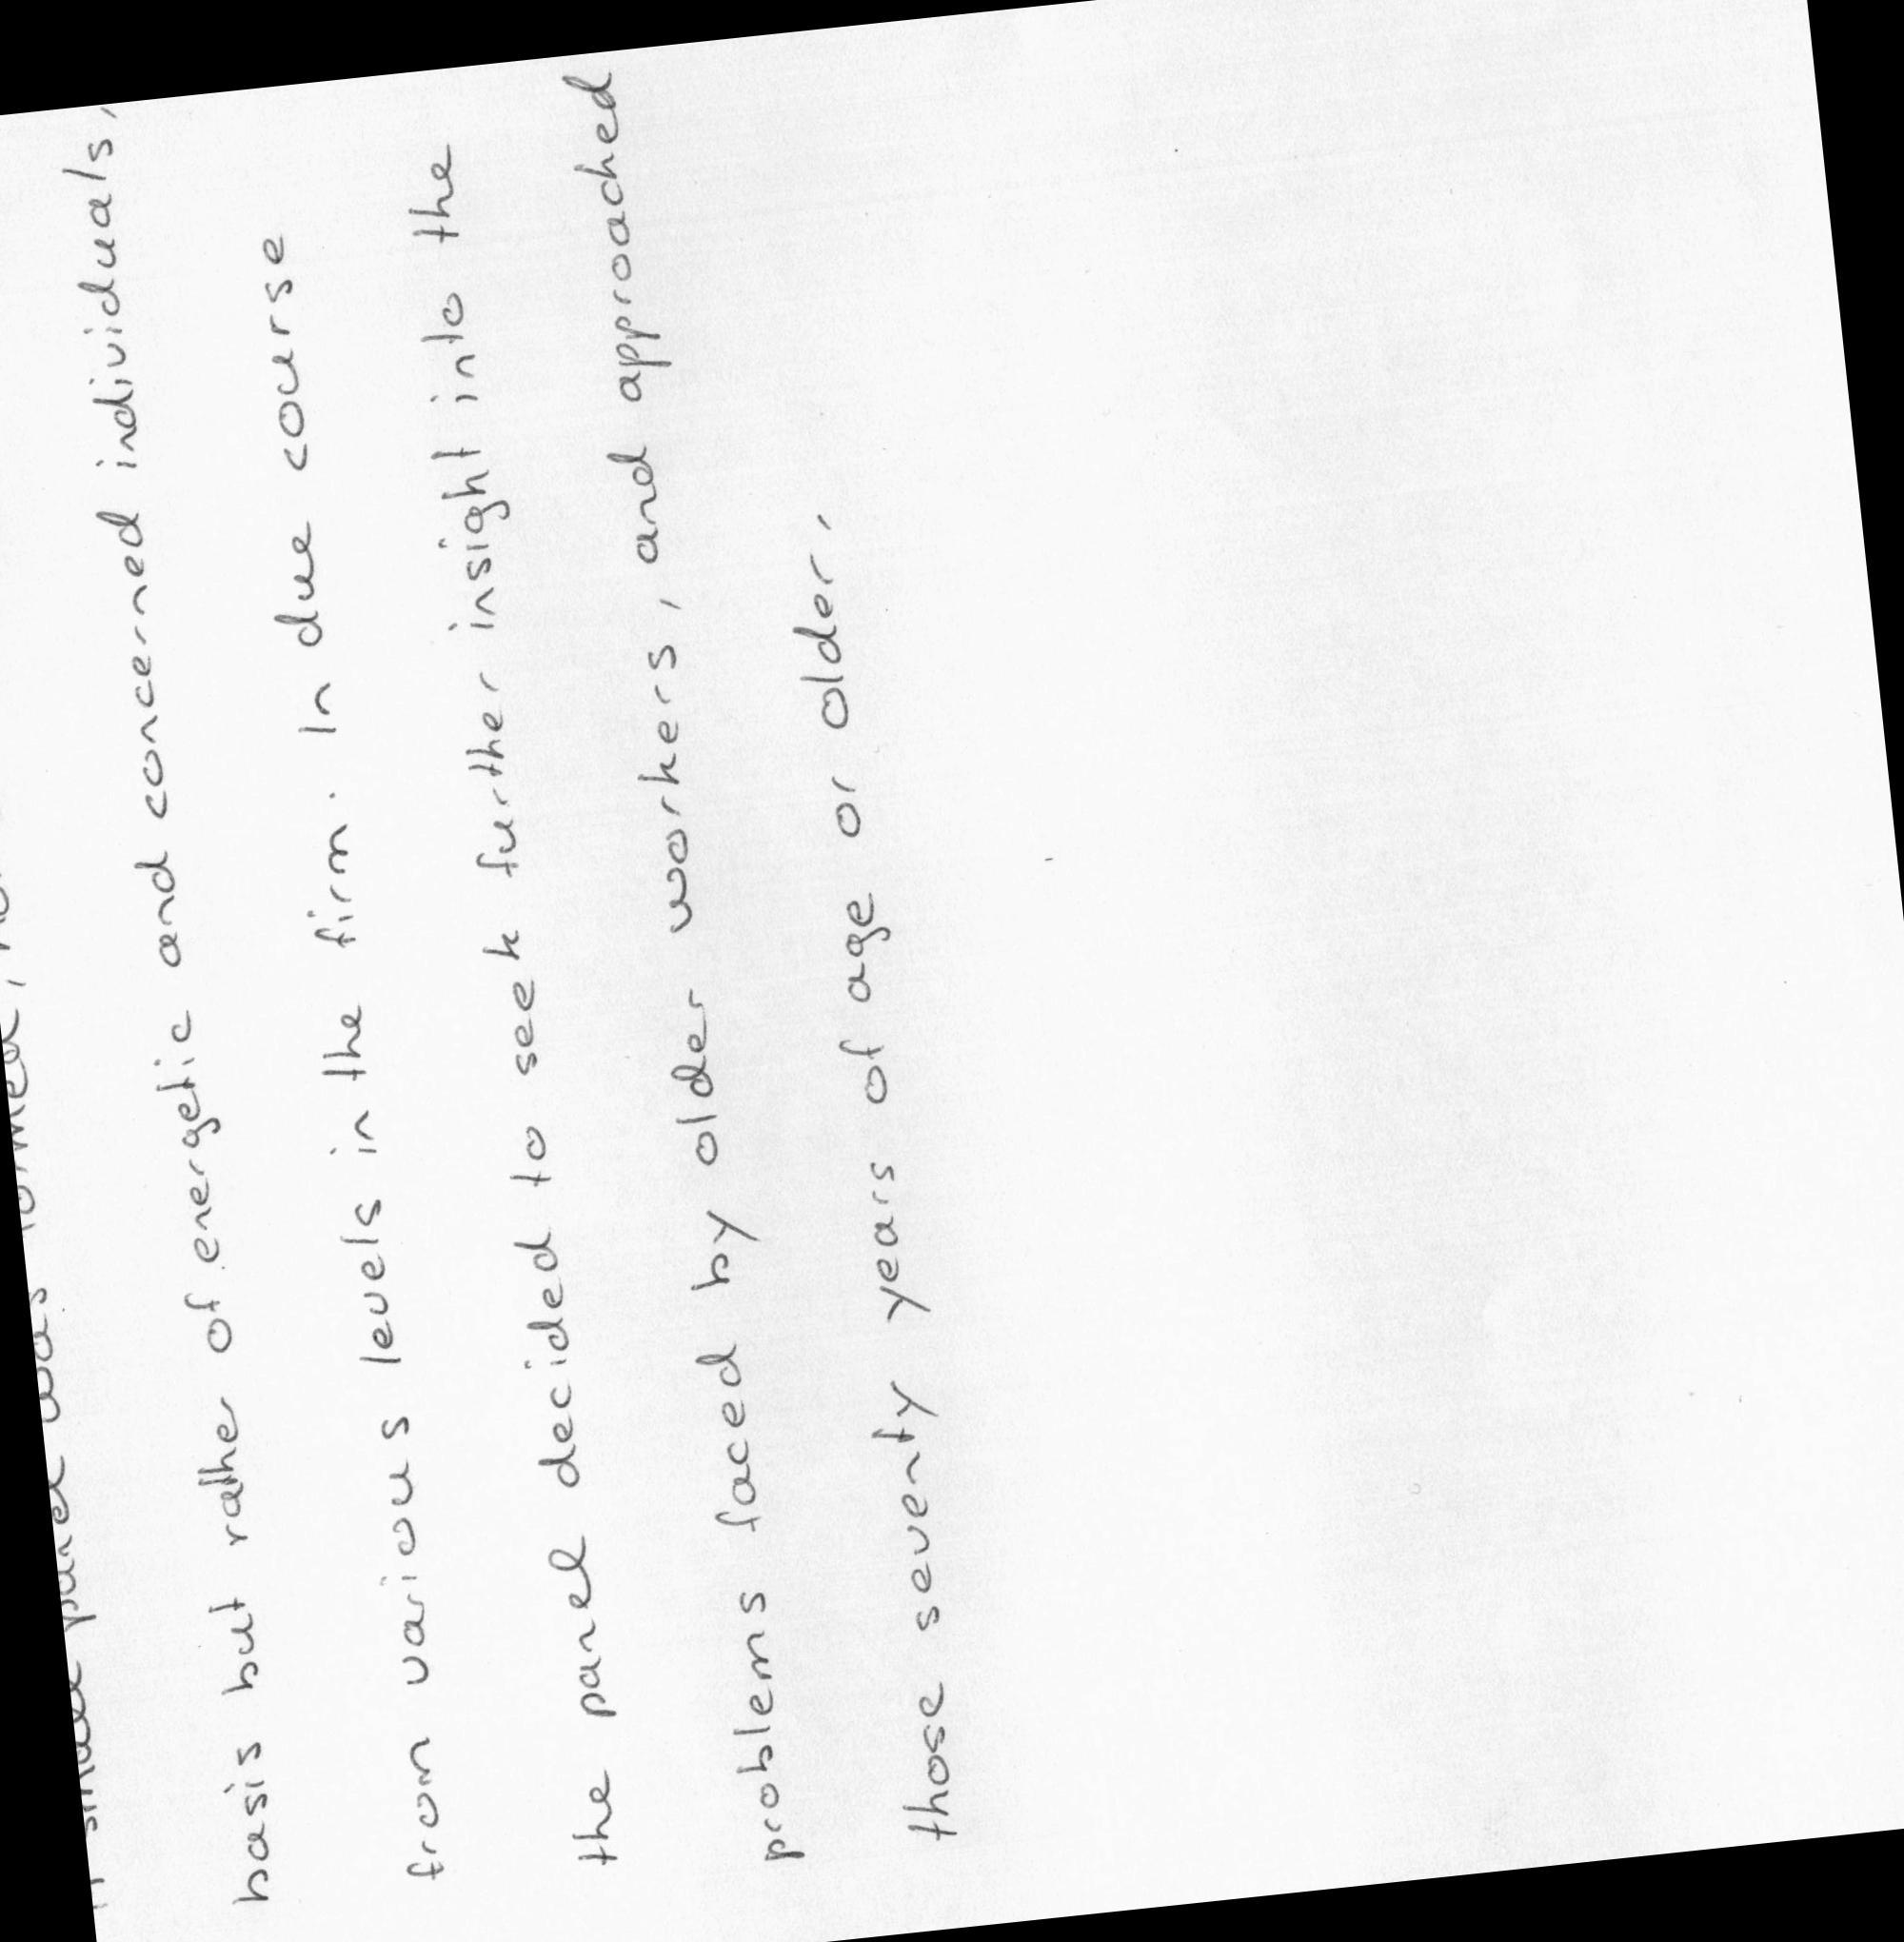 small panel was formed, 
basis but rather of energetic and concerned individuals,
from various levels in the firm. In due course
the panel decided to seek further insight into the
problems faced by older workers, and approached
those seventy years of age or older.